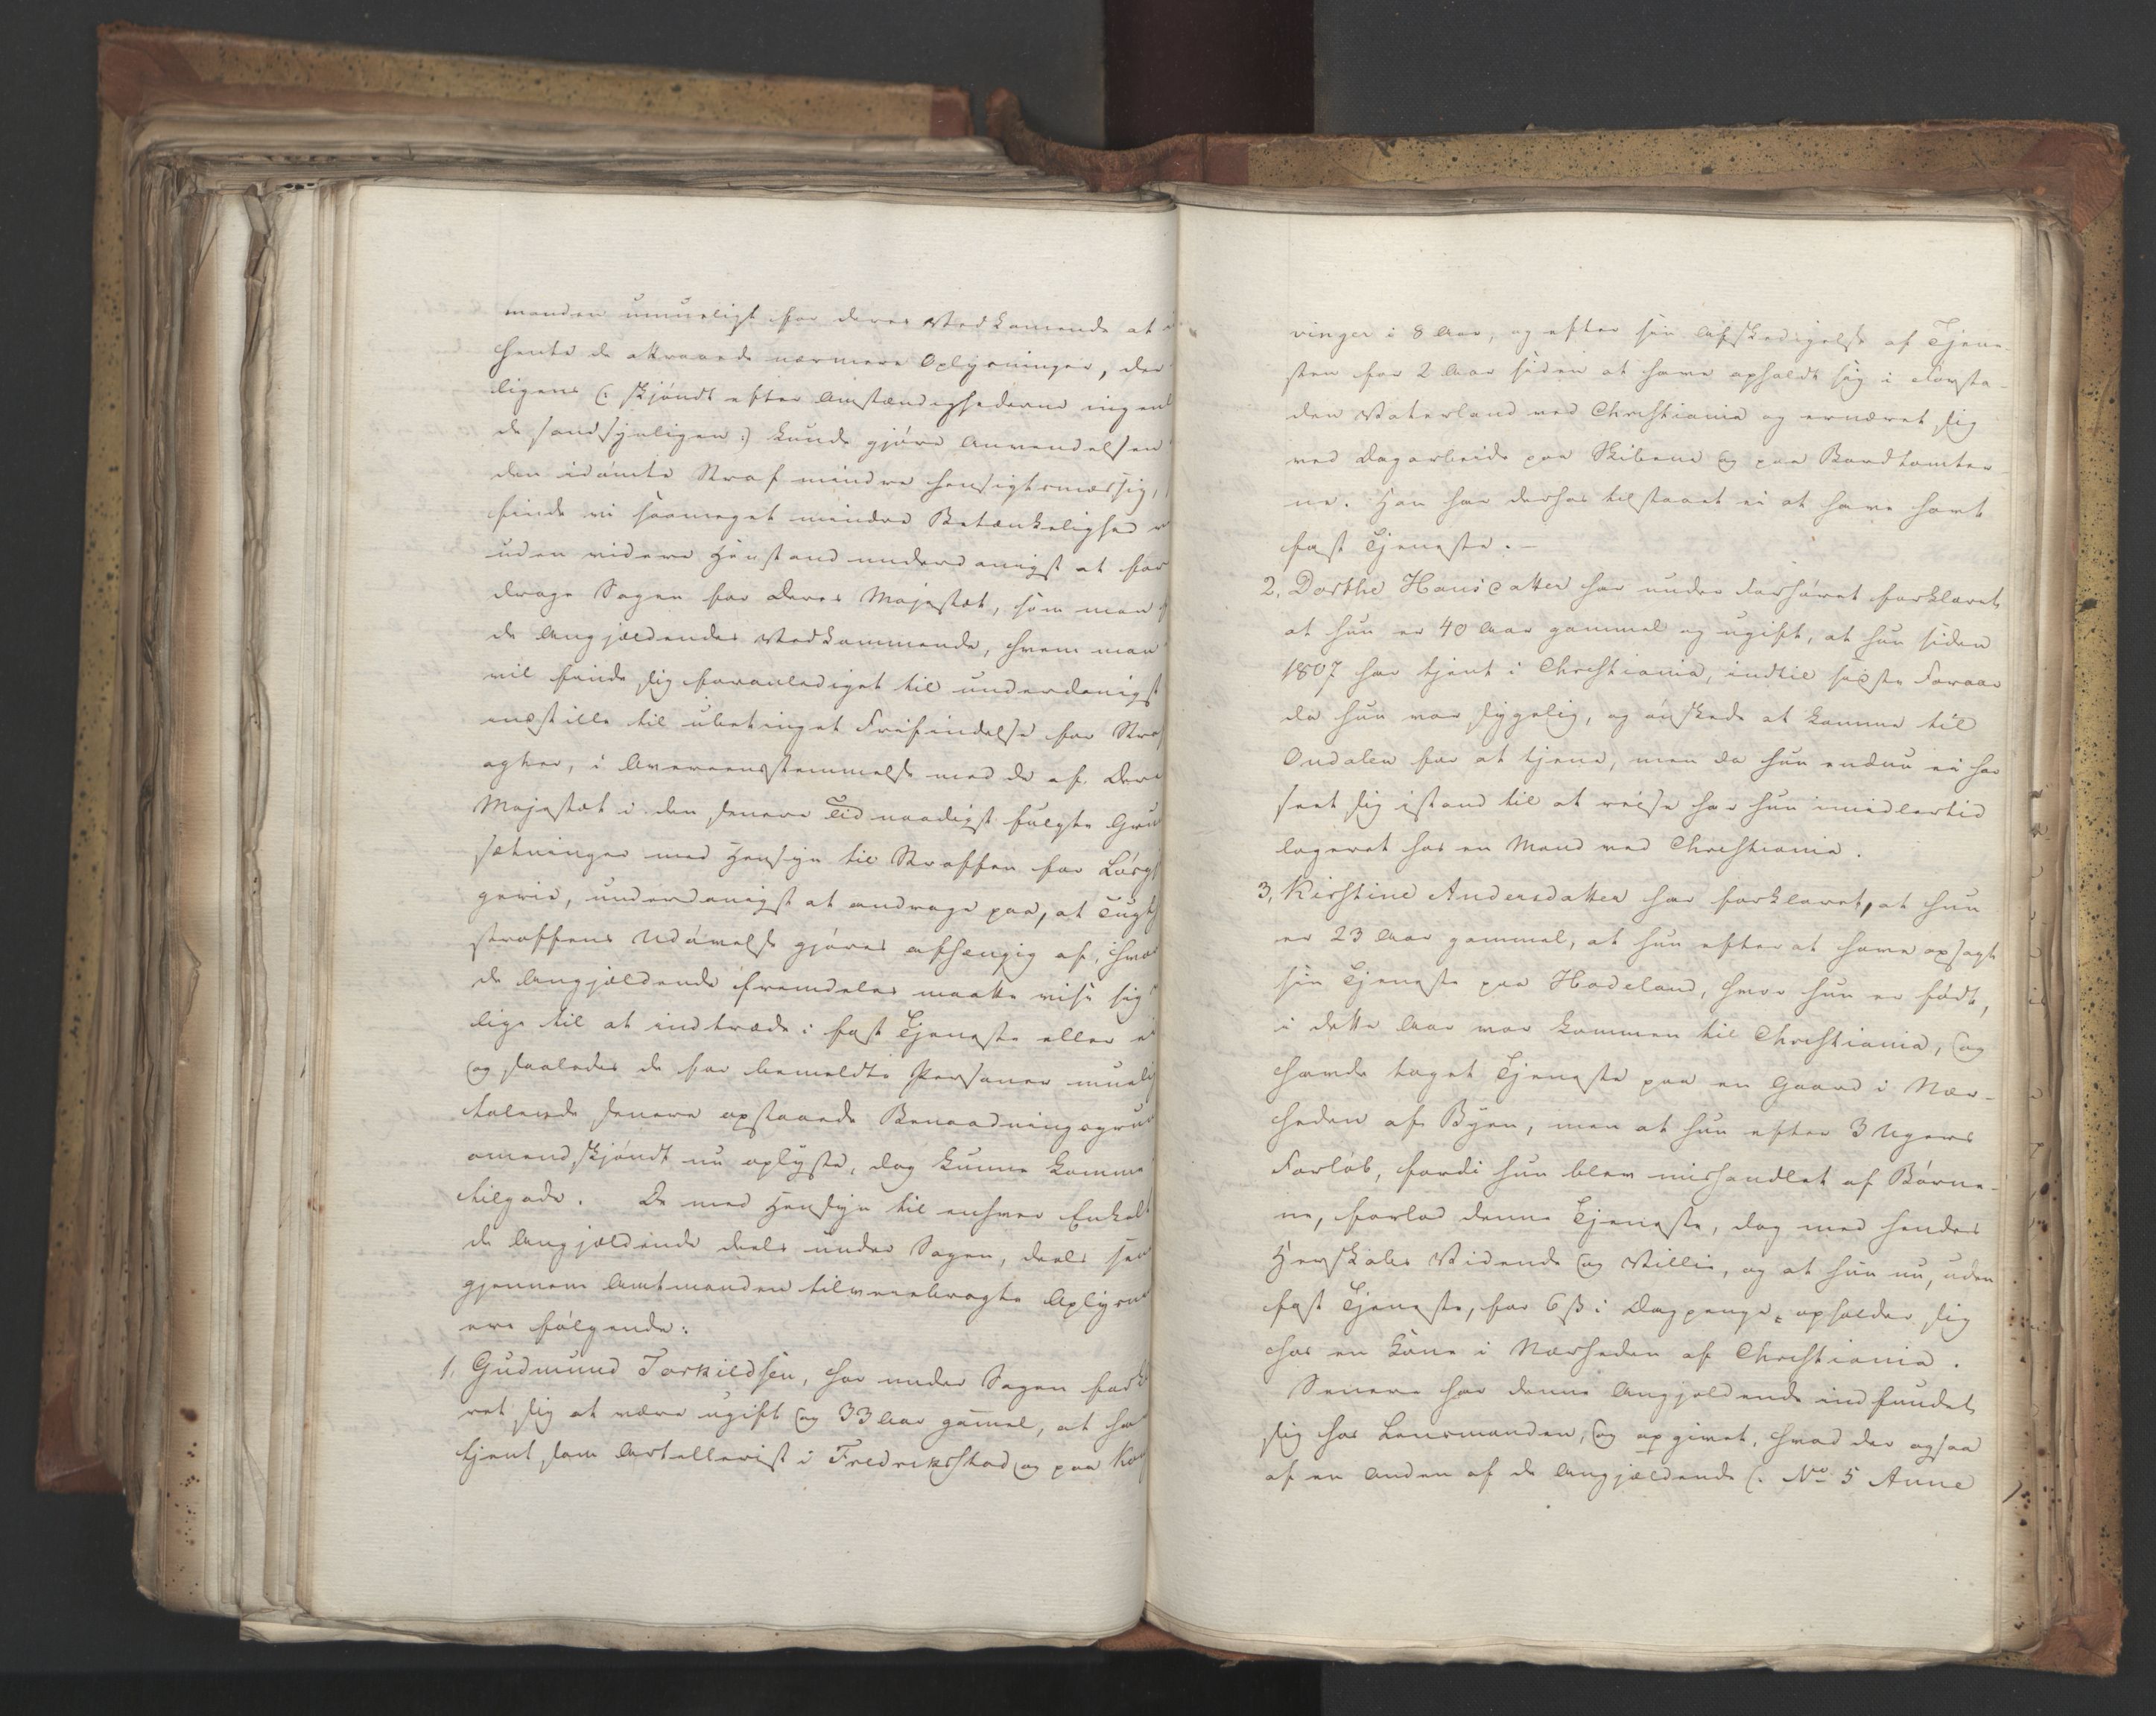 manden umueligt for deres Vedkomende at
hente de attraaede nærmere Oplysninger, der
ligens (: skjöndt efter Omstændighederne ingen
de sandsynligen :) kunde gjöre Anvendelsen
den idömte Straf mindre hensigtsmæssig,
finde vi saameget mindre Betænkelighed
uden videre Henstand underdanigst at for
drage Sagen for Deres Majestæt, som man
de Angjældendes Vedkommende, hvem man
vil finde sig foranlediget til underdanigst
indstille til ubetinget Frifindelse for Straf
agter, i Overeensstemmelse med de af Deres
Majestæt i den senere Tid naadigst fulgte Grund
sætninger med Hensyn til Straffen for Lösg
geri, underdanigst at andrage paa, at Tugt
straffens Udövelse gjöres afhængig af, hvor
de Angjældende fremdeles maatte vise sig
lige til at indtræde i fast Tjeneste eller ei
og saaledes de for bemeldte Personer muelig
talende senere opstaaede Benaadningsgrun
omendskjöndt nu oplyste, dog kunne komme
tilgode. De med Hensyn til enhver Enkelt
de Angjældende deels under Sagen, deels sen
gjennem Amtmanden tilveiebragte Oplysn
ere fölgende:
1, Gudmund Torkildsen, har under Sagen forkl
ret sig at være ugift og 33 Aar gamel, at ha
tjent som Artillerist i Fredriksstad og paa Kong
vinger i 8 Aar, og efter sin Afskedigelse af Tjene-
sten for 2 Aar siden at have opholdt sig i Forsta-
den Vaterland ved Christiania og ernæret sig
ved Dagarbeide paa Skibene og paa Bordtomter-
ne. Han har derhos tilstaaet ei at have havt
fast Tjeneste.-
2, Dorthe Hansdatter har under Forhöret forklaret
at hun er 40 Aar gammel og ugift, at hun siden
1807 har tjent i Christiania, indtil sidste Foraar
da hun var sygelig, og önskede at komme til
Oudalen for at tjene, men da hun endnu ei har
seet sig istand til at reise har hun imidlertid
logeret hos en Mand ved Christiania.
3, Kirstine Andersdatter har forklaret, at hun
er 23 Aar gammel, at hun efter at have opsagt
sin Tjeneste paa Hadeland, hvor hun er födt,
i dette Aar var kommen til Christiania, og
havde taget Tjeneste paa en Gaard i Nær-
heden af Byen, men at hun efter 3 Ugers
Forlöb, fordi hun blev mishandlet af Börne-
ne, forlod denne Tjeneste, dog med hendes
Herskabs Vidende og Villie, og at hun nu, uden
fast Tjeneste, for 6 ß i Dagpenge, opholder sig
hos en Kone i Nærheden af Christiania.
Senere har denne Angjældende indfundet
sig hos Lensmanden, og opgivet, hvad der ogsaa
af en Anden af de Angjældende (: No 5 Anne